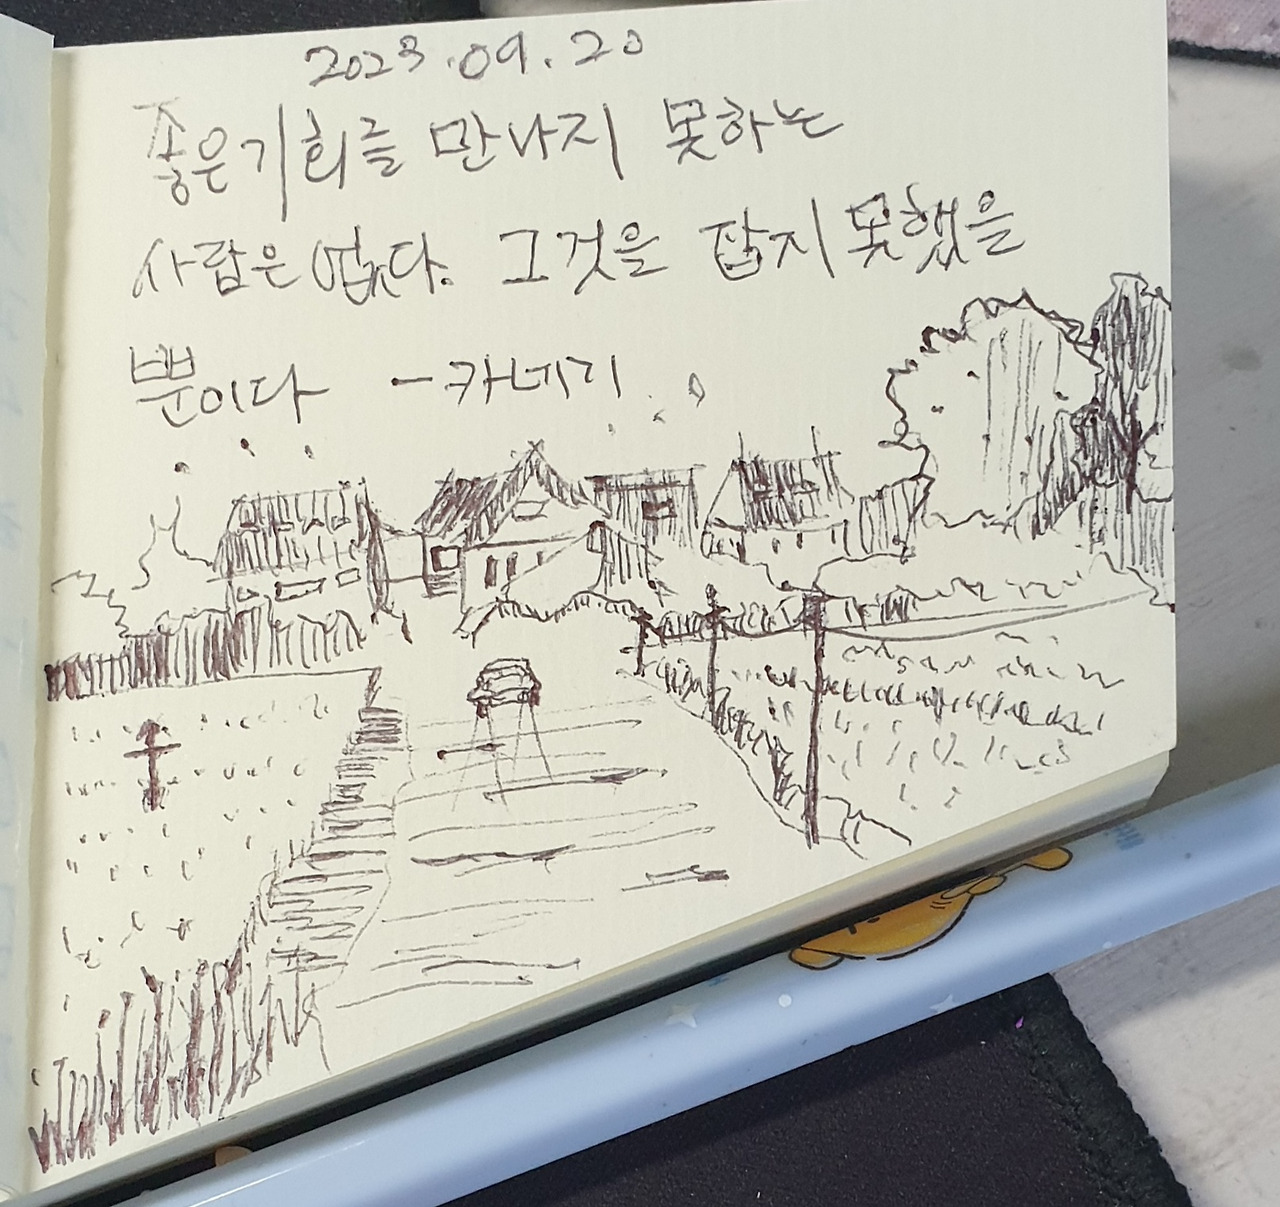 2023.09.20
좋은기회를 만나지 못하는
사람은 없다. 그것을 답지 못했을
뿐이다 - 카네기